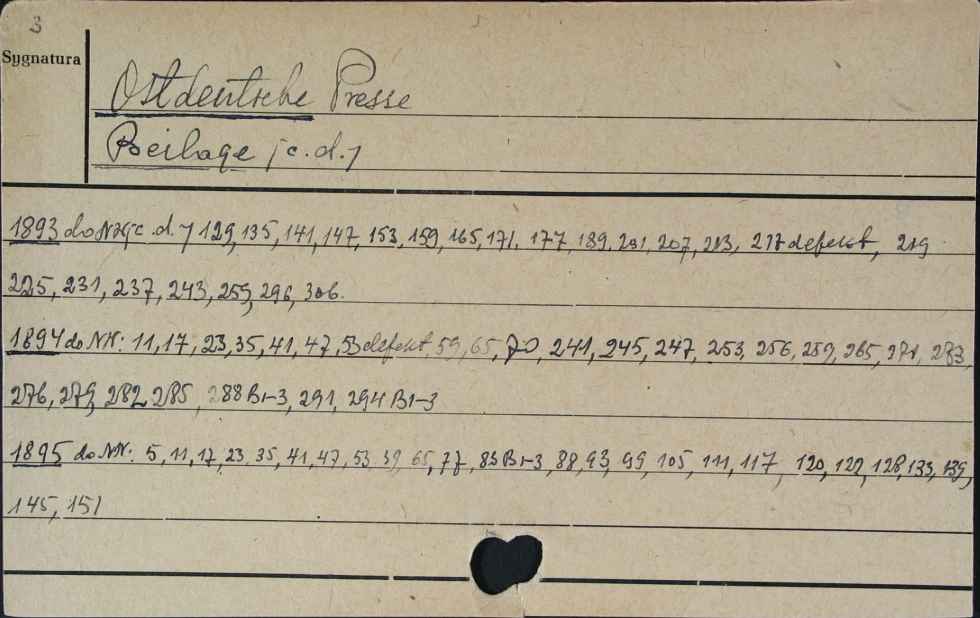 3
Sygnatura
Ostdeutsche Presse
Beilage /c.d./
1893 do NN /c. d. / 129, 135, 141, 147, 153, 159, 165, 171, 177, 189, 201, 207, 213, 217 defekt, 219
225, 231, 237, 243, 259, 296, 306.
1894 do NN: 11, 17, 23, 35, 41, 47, 53 defekt, 59, 65, 70, 241, 245, 247, 253, 256, 259, 265, 271, 273,
276, 279, 282, 285, 288 B1-3, 291, 294 B1-3
1895 do NN: 5, 11, 17, 23, 35, 41, 47, 53, 59, 65, 77, 83 B1-3, 88, 93, 99, 105, 111, 117, 120, 122, 128, 133, 139,
145, 151